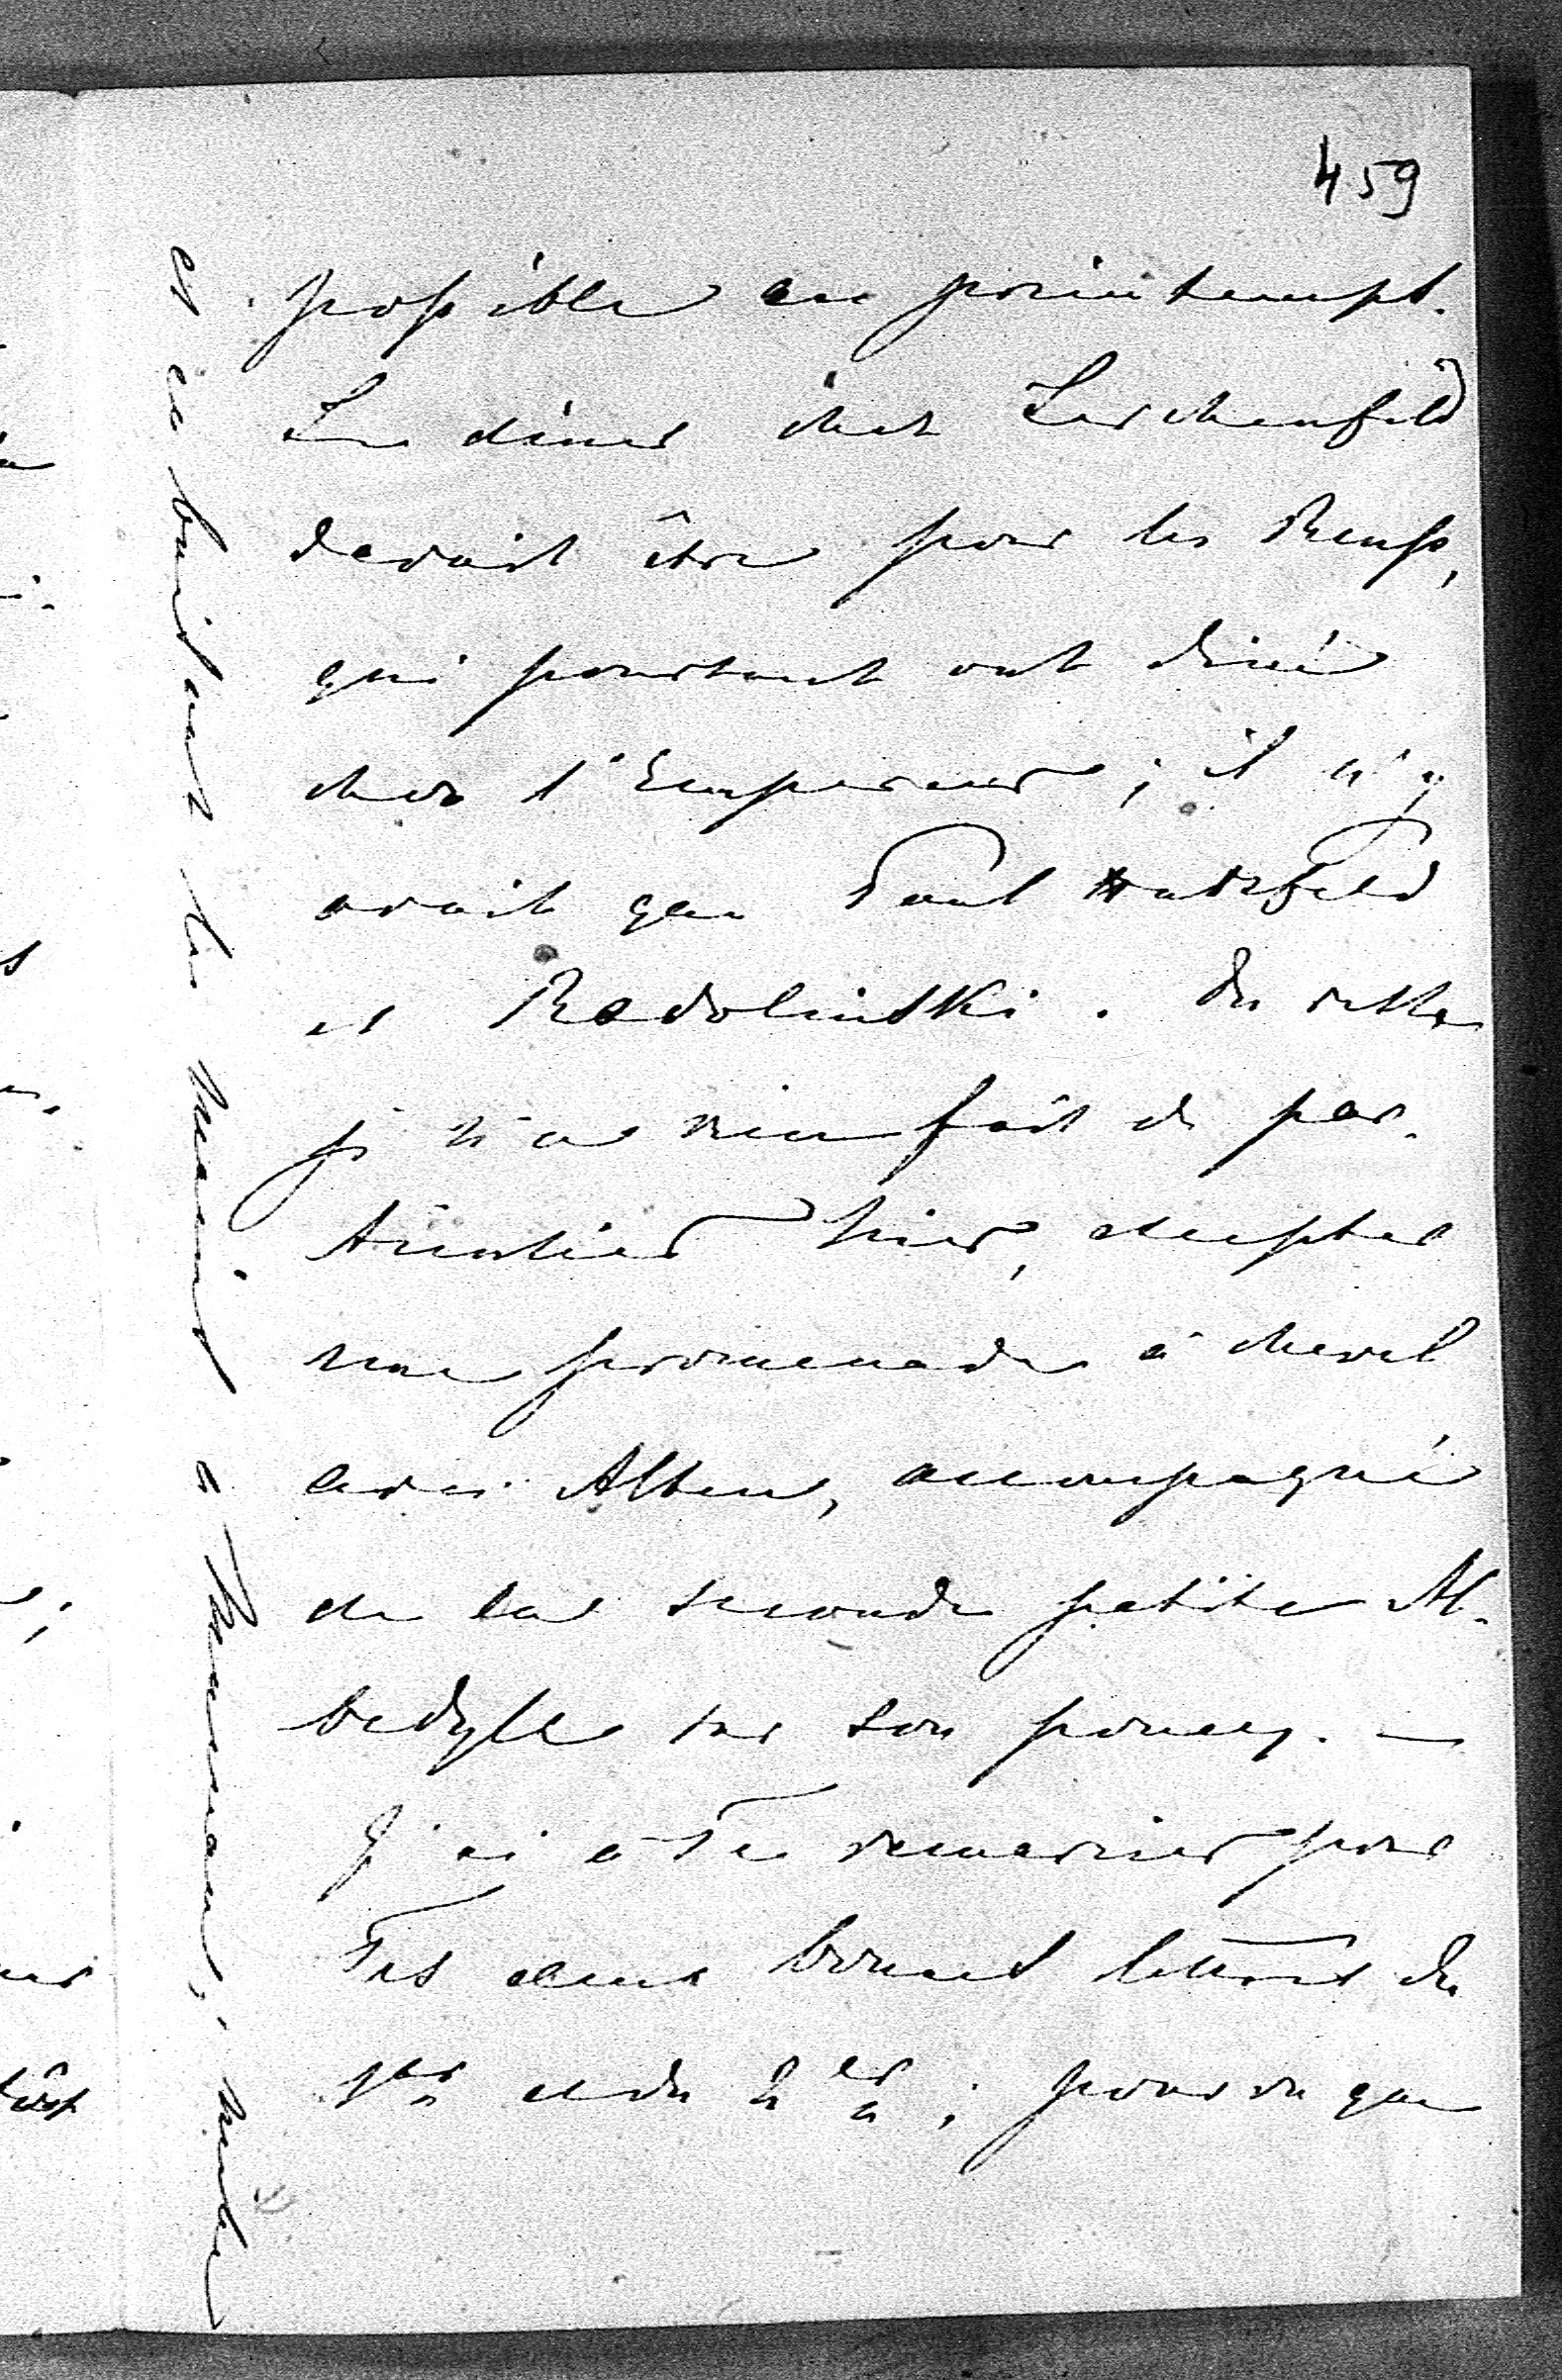 459
possible au printemps.
Le diner chez Lerchenfeld
devait être pour les Reuss,
qui pourtant ont diné
chez l'Empereur; il n'y
avait que Paul Hatzfeld
et Radolinski. Du reste
je n'ai rien fait de par-
ticulier hier, excepter
une promenade à cheval
avec Alten, accompagné
de la seconde petite Al-
bedyll sur son poney. —
J'ai à Te remercier pour
Tes deux bonnes lettres du
1er et du 2er; pourvu que
et en baisant les mains à Maman,